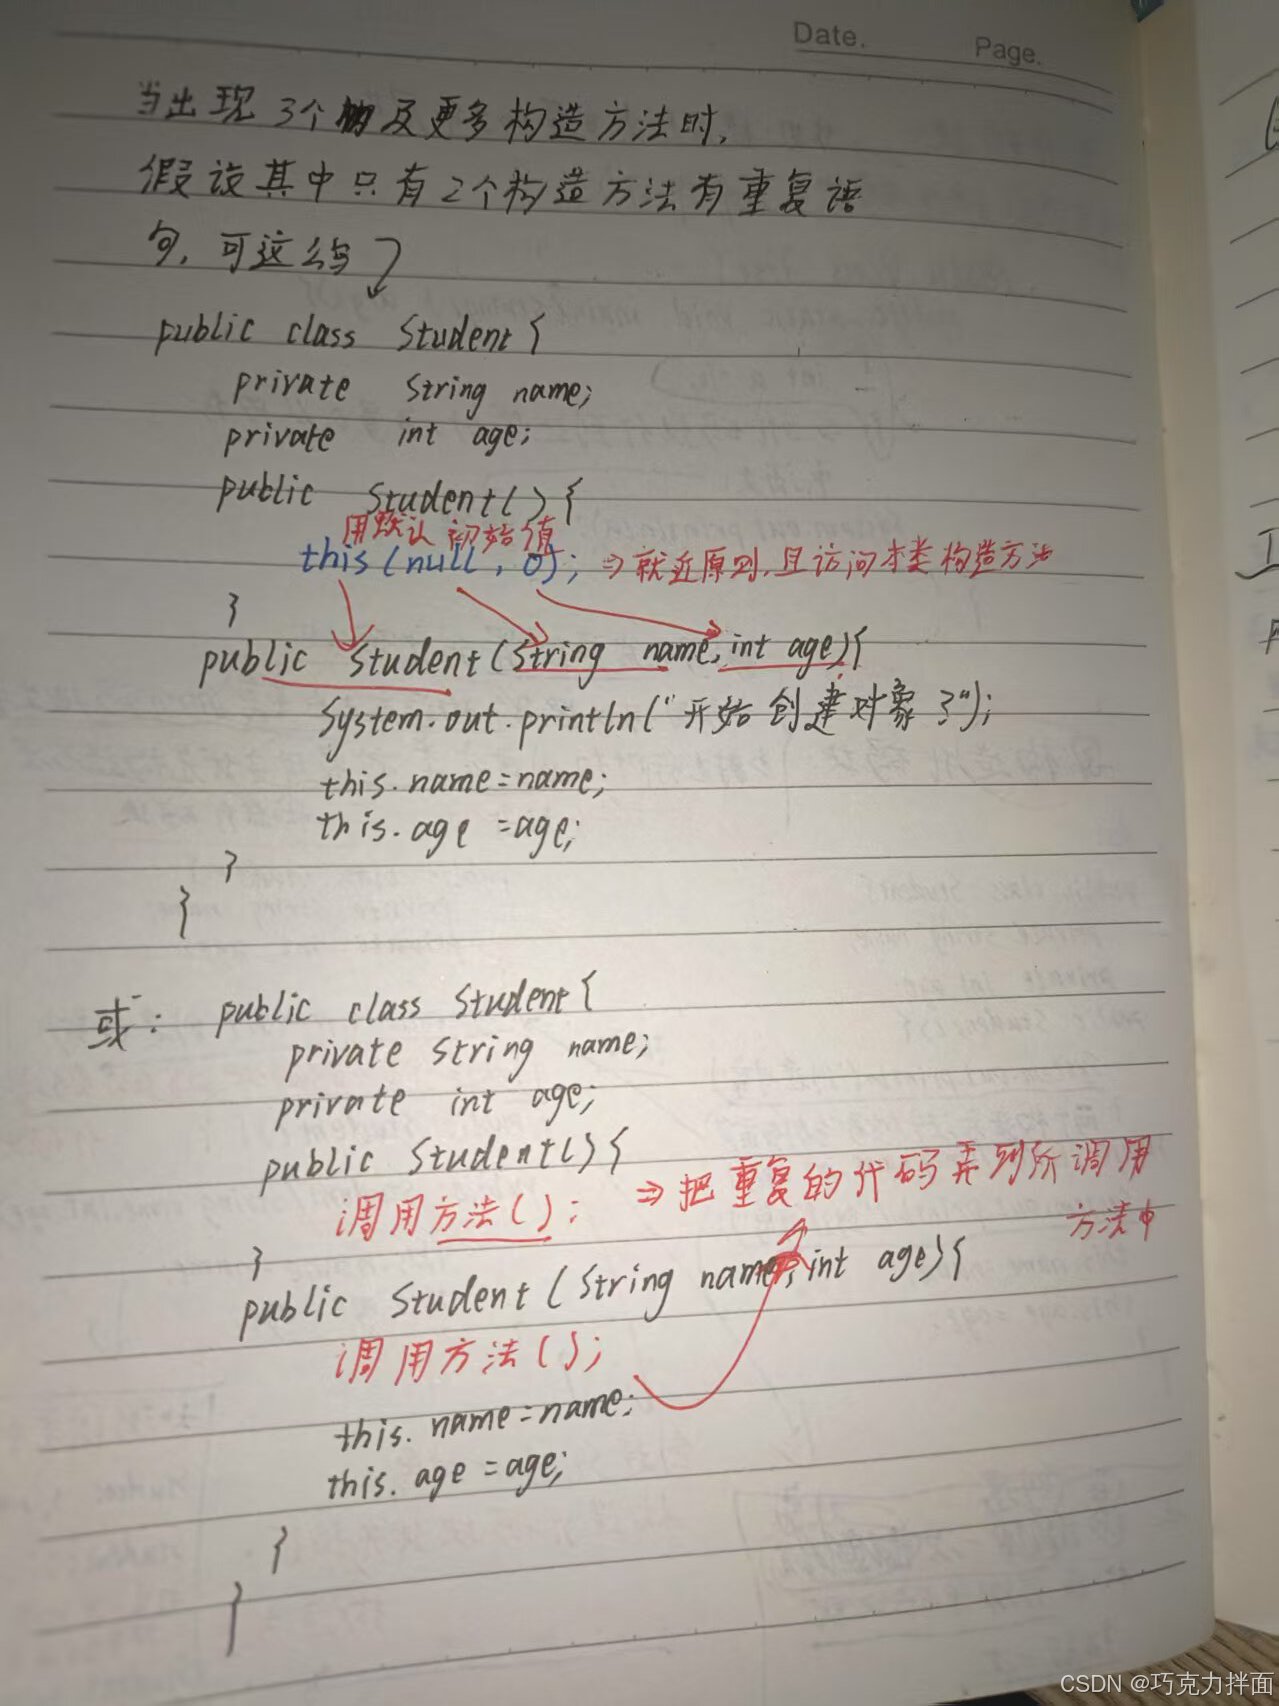 Date. Page.
当出现3个及更多构造方法时,
假设其中只有2个构造方法有重复语
句,可这么写
public class Student{
private String name;
private int age;
public Student(){
用默认初始值
this(null, 0); ⇒就近原则,且访问本类构造方法
}
public Student(String name,int age){
System.out.println("开始创建对象了");
this.name=name;
this.age=age;
}
}
或: public class Student{
private String name;
private int age;
public Student(){
调用方法(); ⇒把重复的代码弄到所调用
方法中
}
public Student(String name,int age){
调用方法();
this.name=name;
this.age=age;
}
}
CSDN @巧克力拌面